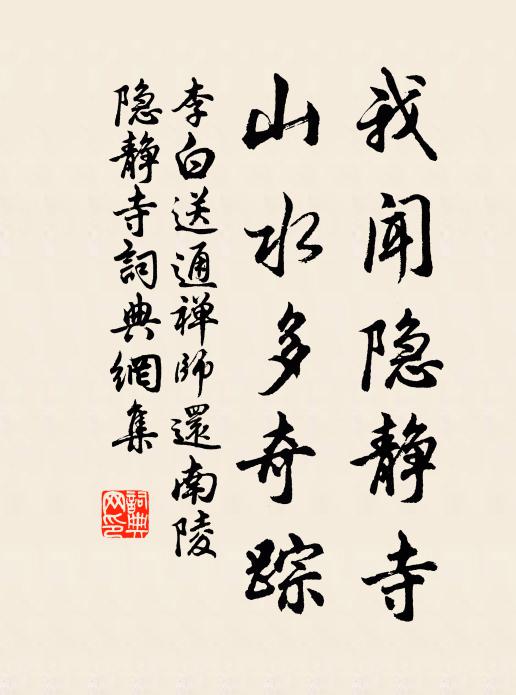 我闻隐静寺
山水多奇踪
李白送通禅师還南陵
隐静寺詞典網集
詞典
网印